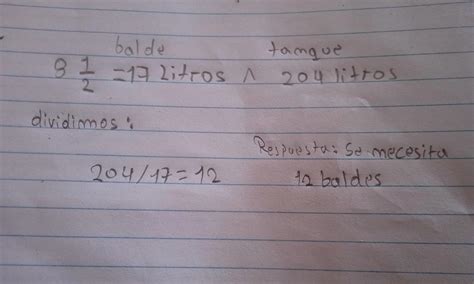 balde tanque
8 1/2 = 17 litros ∧ 204 litros
dividimos:
204/17 = 12
Respuesta: Se necesita
12 baldes